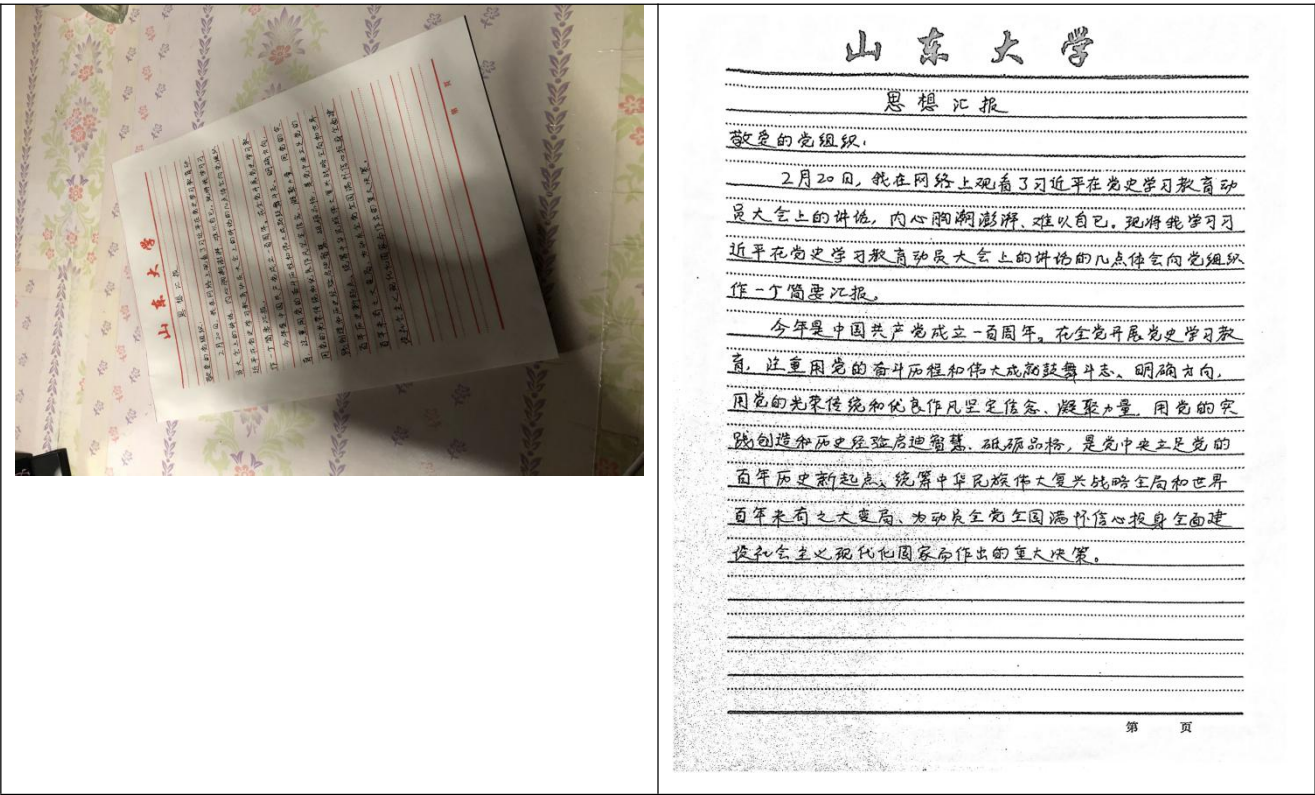 山东大学
思想汇报
敬爱的党组织：
2月20日，我在网络上观看了习近平在党史学习教育动
员大会上的讲话，内心胸潮澎湃、难以自已。现将我学习习
近平在党史学习教育动员大会上的讲话的几点体会向党组织
作一个简要汇报。
今年是中国共产党成立一百周年。在全党开展党史学习教
育，注重用党的奋斗历程和伟大成就鼓舞斗志、明确方向，
用党的光荣传统和优良作风坚定信念、凝聚力量，用党的实
践创造和历史经验启迪智慧、砥砺品格，是党中央立足党的
百年历史新起点、统筹中华民族伟大复兴战略全局和世界
百年未有之大变局、为动员全党全国满怀信心投身全面建
设社会主义现代化国家而作出的重大决策。
第 页